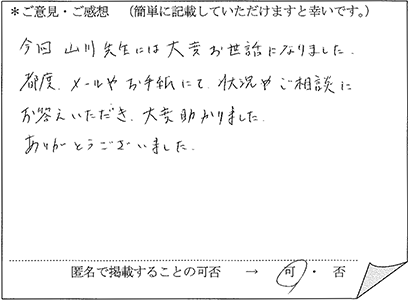 ＊ご意見・ご感想　（簡単に記載していただけますと幸いです。）
今回 山川先生には大変お世話になりました.
都度、メールやお手紙にて、状況やご相談に
お答えいただき、大変助かりました.
ありがとうございました.
匿名で掲載することの可否　→　可・否